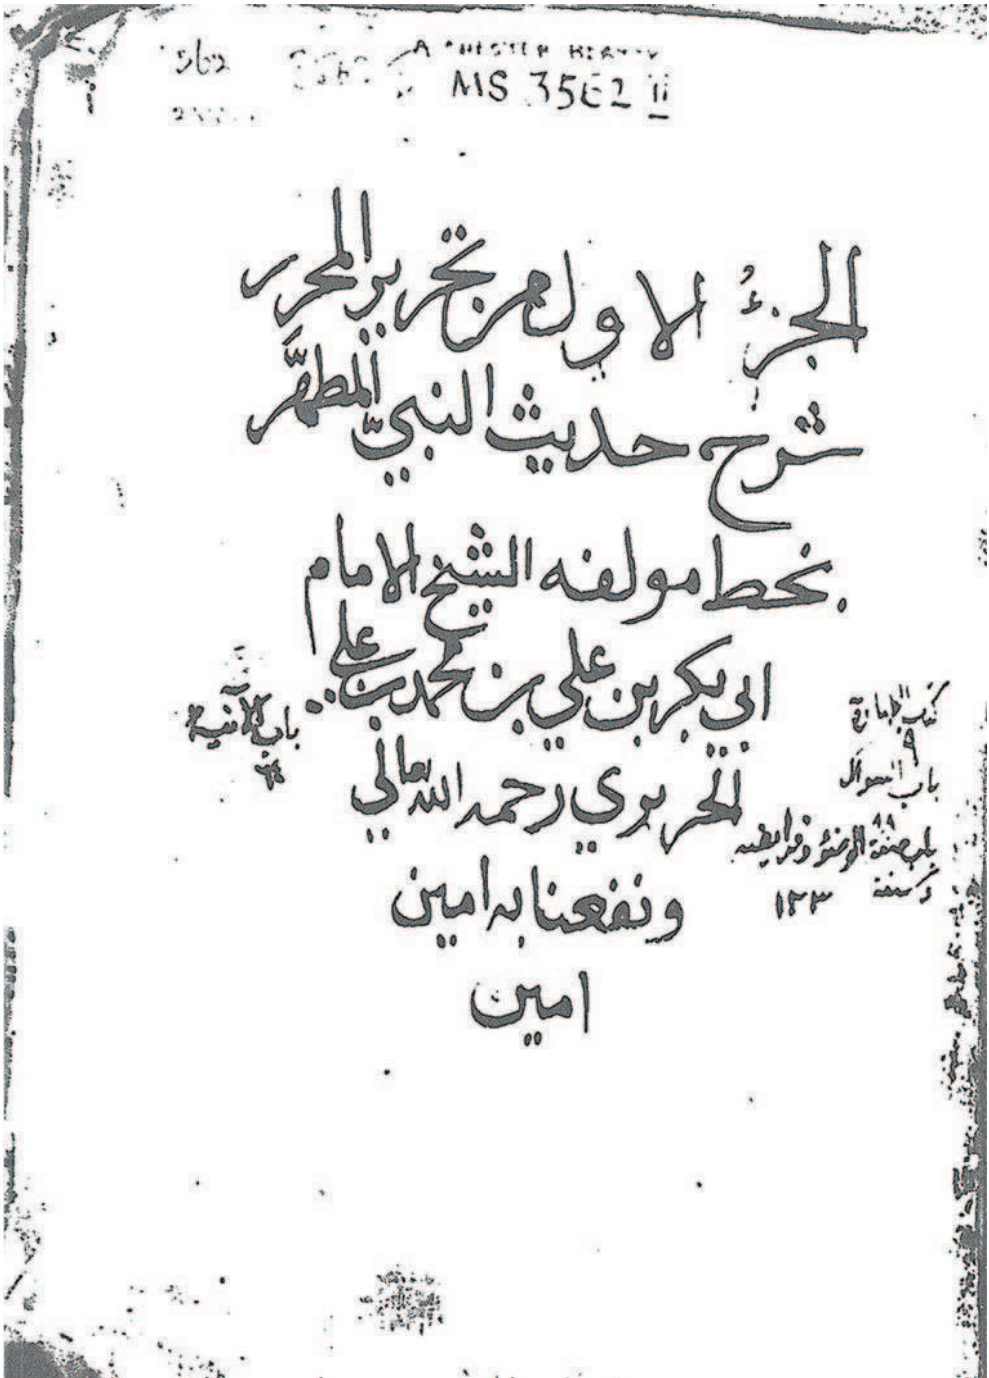 A CHESTER BEATTY
MS 3562 ii
الجزء الاول من تحرير المحرر
شرح حديث النبيّ المطهّر
بخط مولفه الشيخ الامام
ابي بكر بن علي بن محمد بن علي
الحريري رحمه الله تعالى
ونفعنا به امين
امين
باب الآنية
٦٤
كتاب الطهارة
٩
باب السواك
٨٨
باب صفة الوضوء وفرايضه
وسننه
١٢٣